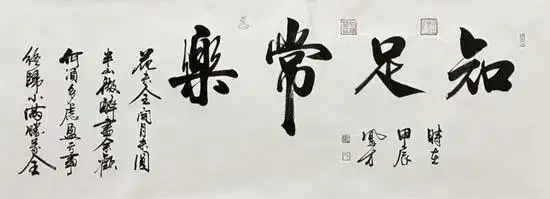 知足常樂
花未全開月未圓
半山微醉盡余歡
何須多慮盈亏事
終歸小滿勝萬全
時在
甲辰